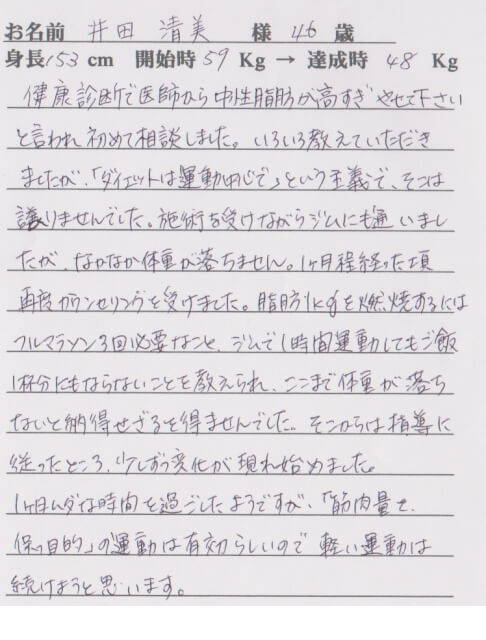 お名前 井田 清美 様 46 歳
身長153 cm 開始時59 Kg → 達成時 48 Kg
健康診断で医師から中性脂肪が高すぎ やせて下さい
と言われ初めて相談しました。いろいろ教えていただき
ましたが、「ダイエットは運動中心で」という主義で、そこは
譲りませんでした。施術を受けながらジムにも通いまし
たが、なかなか体重が落ちません。1ヶ月程経った頃
再度カウンセリングを受けました。脂肪1kgを燃焼するには
フルマラソン3回必要なこと、ジムで1時間運動してもご飯
1杯分にもならないことを教えられ、ここまで体重が落ち
ないと納得せざるを得ませんでした。そこからは指導に
従ったところ、少しずつ変化が現れ始めました。
1ヶ月ムダな時間を過ごしたようですが、「筋肉量を、
保つ目的」の運動は有効らしいので 軽い運動は
続けようと思います。